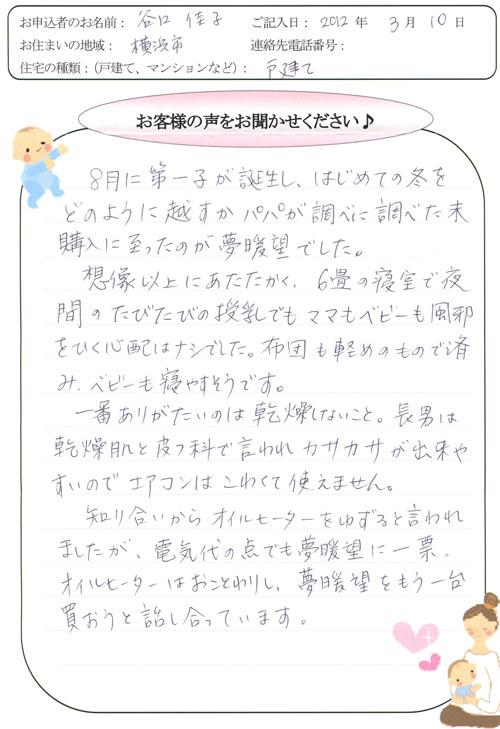 お申込者のお名前： 谷口 佳子 ご記入日： 2012 年 3 月 10 日
お住まいの地域： 横浜市 連絡先電話番号：
住宅の種類：（戸建て、マンションなど）： 戸建て
お客様の声をお聞かせください♪
8月に第一子が誕生し、はじめての冬を
どのように越すかパパが調べに調べた末
購入に至ったのが夢暖望でした。
想像以上にあたたかく、6畳の寝室で夜
間のたびたびの授乳でもママもベビーも風邪
をひく心配はナシでした。布団も軽めのもので済
み、ベビーも寝やすそうです。
一番ありがたいのは乾燥しないこと。長男は
乾燥肌と皮フ科で言われカサカサが出来や
すいのでエアコンはこわくて使えません。
知り合いからオイルヒーターをゆずると言われ
ましたが、電気代の点でも夢暖望に一票。
オイルヒーターはおことわりし、夢暖望をもう一台
買おうと話し合っています。